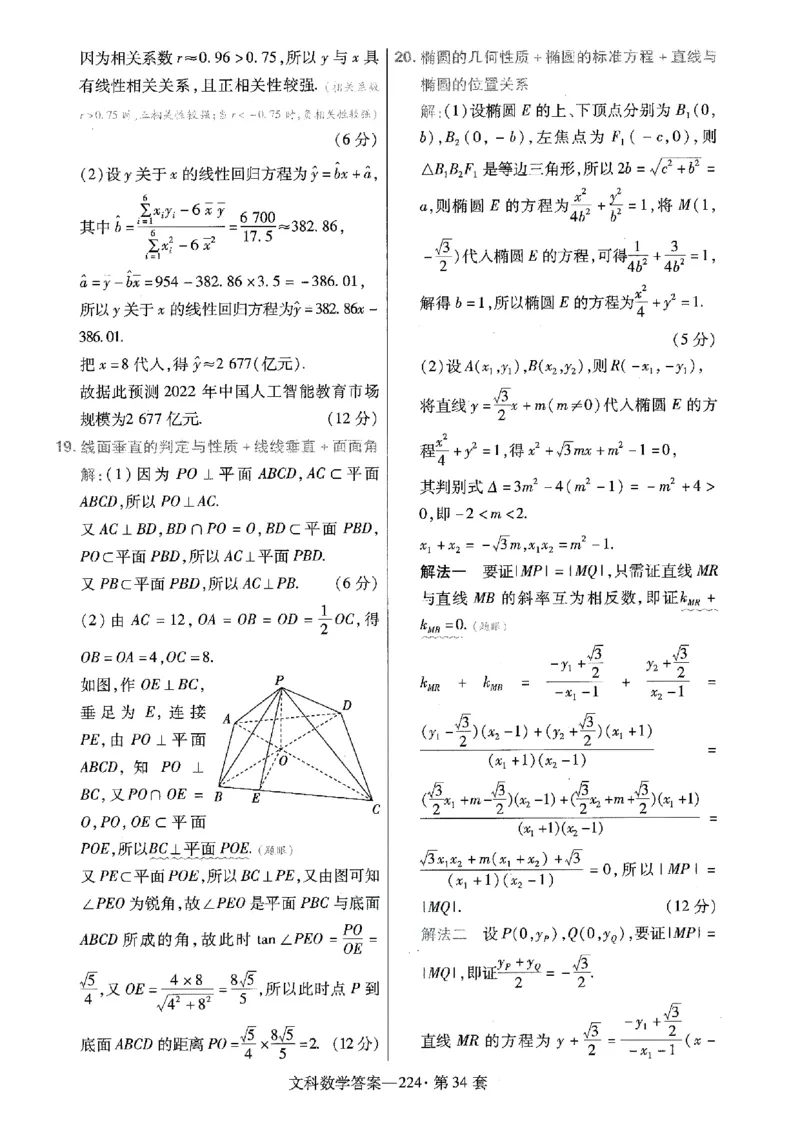 因为相关系数 r≈0.96>0.75,所以 y 与 x 具
有线性相关关系,且正相关性较强. (相关系数
r>0.75 时,正相关性较强;当 r<-0.75 时,负相关性较强)
(6 分)
(2)设 y 关于 x 的线性回归方程为 ŷ=b̂x+â,
其中 b̂=(∑_{i=1}^{6}x_iy_i-6x̄ȳ)/(∑_{i=1}^{6}x_i²-6x̄²)=6 700/17.5≈382.86,
â=ȳ-b̂x̄=954-382.86×3.5=-386.01,
所以 y 关于 x 的线性回归方程为ŷ=382.86x-
386.01.
把 x=8 代入,得 ŷ≈2 677(亿元).
故据此预测 2022 年中国人工智能教育市场
规模为2 677 亿元. (12 分)
19. 线面垂直的判定与性质+线线垂直+面面角
解:(1)因为 PO⊥平面 ABCD,AC⊂平面
ABCD,所以 PO⊥AC.
又 AC⊥BD,BD∩PO=O,BD⊂平面 PBD,
PO⊂平面 PBD,所以 AC⊥平面 PBD.
又 PB⊂平面 PBD,所以 AC⊥PB. (6 分)
(2)由 AC=12,OA=OB=OD=1/2OC,得
OB=OA=4,OC=8.
如图,作 OE⊥BC,
垂足为 E,连接
PE,由 PO⊥平面
ABCD,知 PO⊥
BC,又 PO∩OE=
O,PO,OE⊂平面
P
A
D
O
B
E
C
POE,所以BC⊥平面 POE. (题眼)
又 PE⊂平面 POE,所以 BC⊥PE,又由图可知
∠PEO 为锐角,故∠PEO 是平面 PBC 与底面
ABCD 所成的角,故此时 tan∠PEO=PO/OE=
√5/4,又 OE=4×8/√(4²+8²)=8√5/5,所以此时点 P 到
底面 ABCD 的距离 PO=√5/4×8√5/5=2. (12 分)
20. 椭圆的几何性质+椭圆的标准方程+直线与
椭圆的位置关系
解:(1)设椭圆 E 的上、下顶点分别为 B₁(0,
b),B₂(0,-b),左焦点为 F₁(-c,0),则
△B₁B₂F₁ 是等边三角形,所以 2b=√(c²+b²)=
a,则椭圆 E 的方程为x²/4b²+y²/b²=1,将 M(1,
-√3/2)代入椭圆 E 的方程,可得1/4b²+3/4b²=1,
解得 b=1,所以椭圆 E 的方程为x²/4+y²=1.
(5 分)
(2)设 A(x₁,y₁),B(x₂,y₂),则R(-x₁,-y₁),
将直线 y=√3/2x+m(m≠0)代入椭圆 E 的方
程x²/4+y²=1,得 x²+√3mx+m²-1=0,
其判别式 Δ=3m²-4(m²-1)=-m²+4>
0,即-2<m<2.
x₁+x₂=-√3m,x₁x₂=m²-1.
解法一 要证|MP|=|MQ|,只需证直线 MR
与直线 MB 的斜率互为相反数,即证k_{MR}+
k_{MB}=0. (题眼)
k_{MR}+k_{MB}=(-y₁+√3/2)/(-x₁-1)+(y₂+√3/2)/(x₂-1)=
((y₁-√3/2)(x₂-1)+(y₂+√3/2)(x₁+1))/((x₁+1)(x₂-1))=
((√3/2x₁+m-√3/2)(x₂-1)+(√3/2x₂+m+√3/2)(x₁+1))/((x₁+1)(x₂-1))=
(√3x₁x₂+m(x₁+x₂)+√3)/((x₁+1)(x₂-1))=0,所以|MP|=
|MQ|. (12 分)
解法二 设 P(0,y_P),Q(0,y_Q),要证|MP|=
|MQ|,即证(y_P+y_Q)/2=-√3/2.
直线 MR 的方程为 y+√3/2=(-y₁+√3/2)/(-x₁-1)(x-
文科数学答案—224·第 34 套